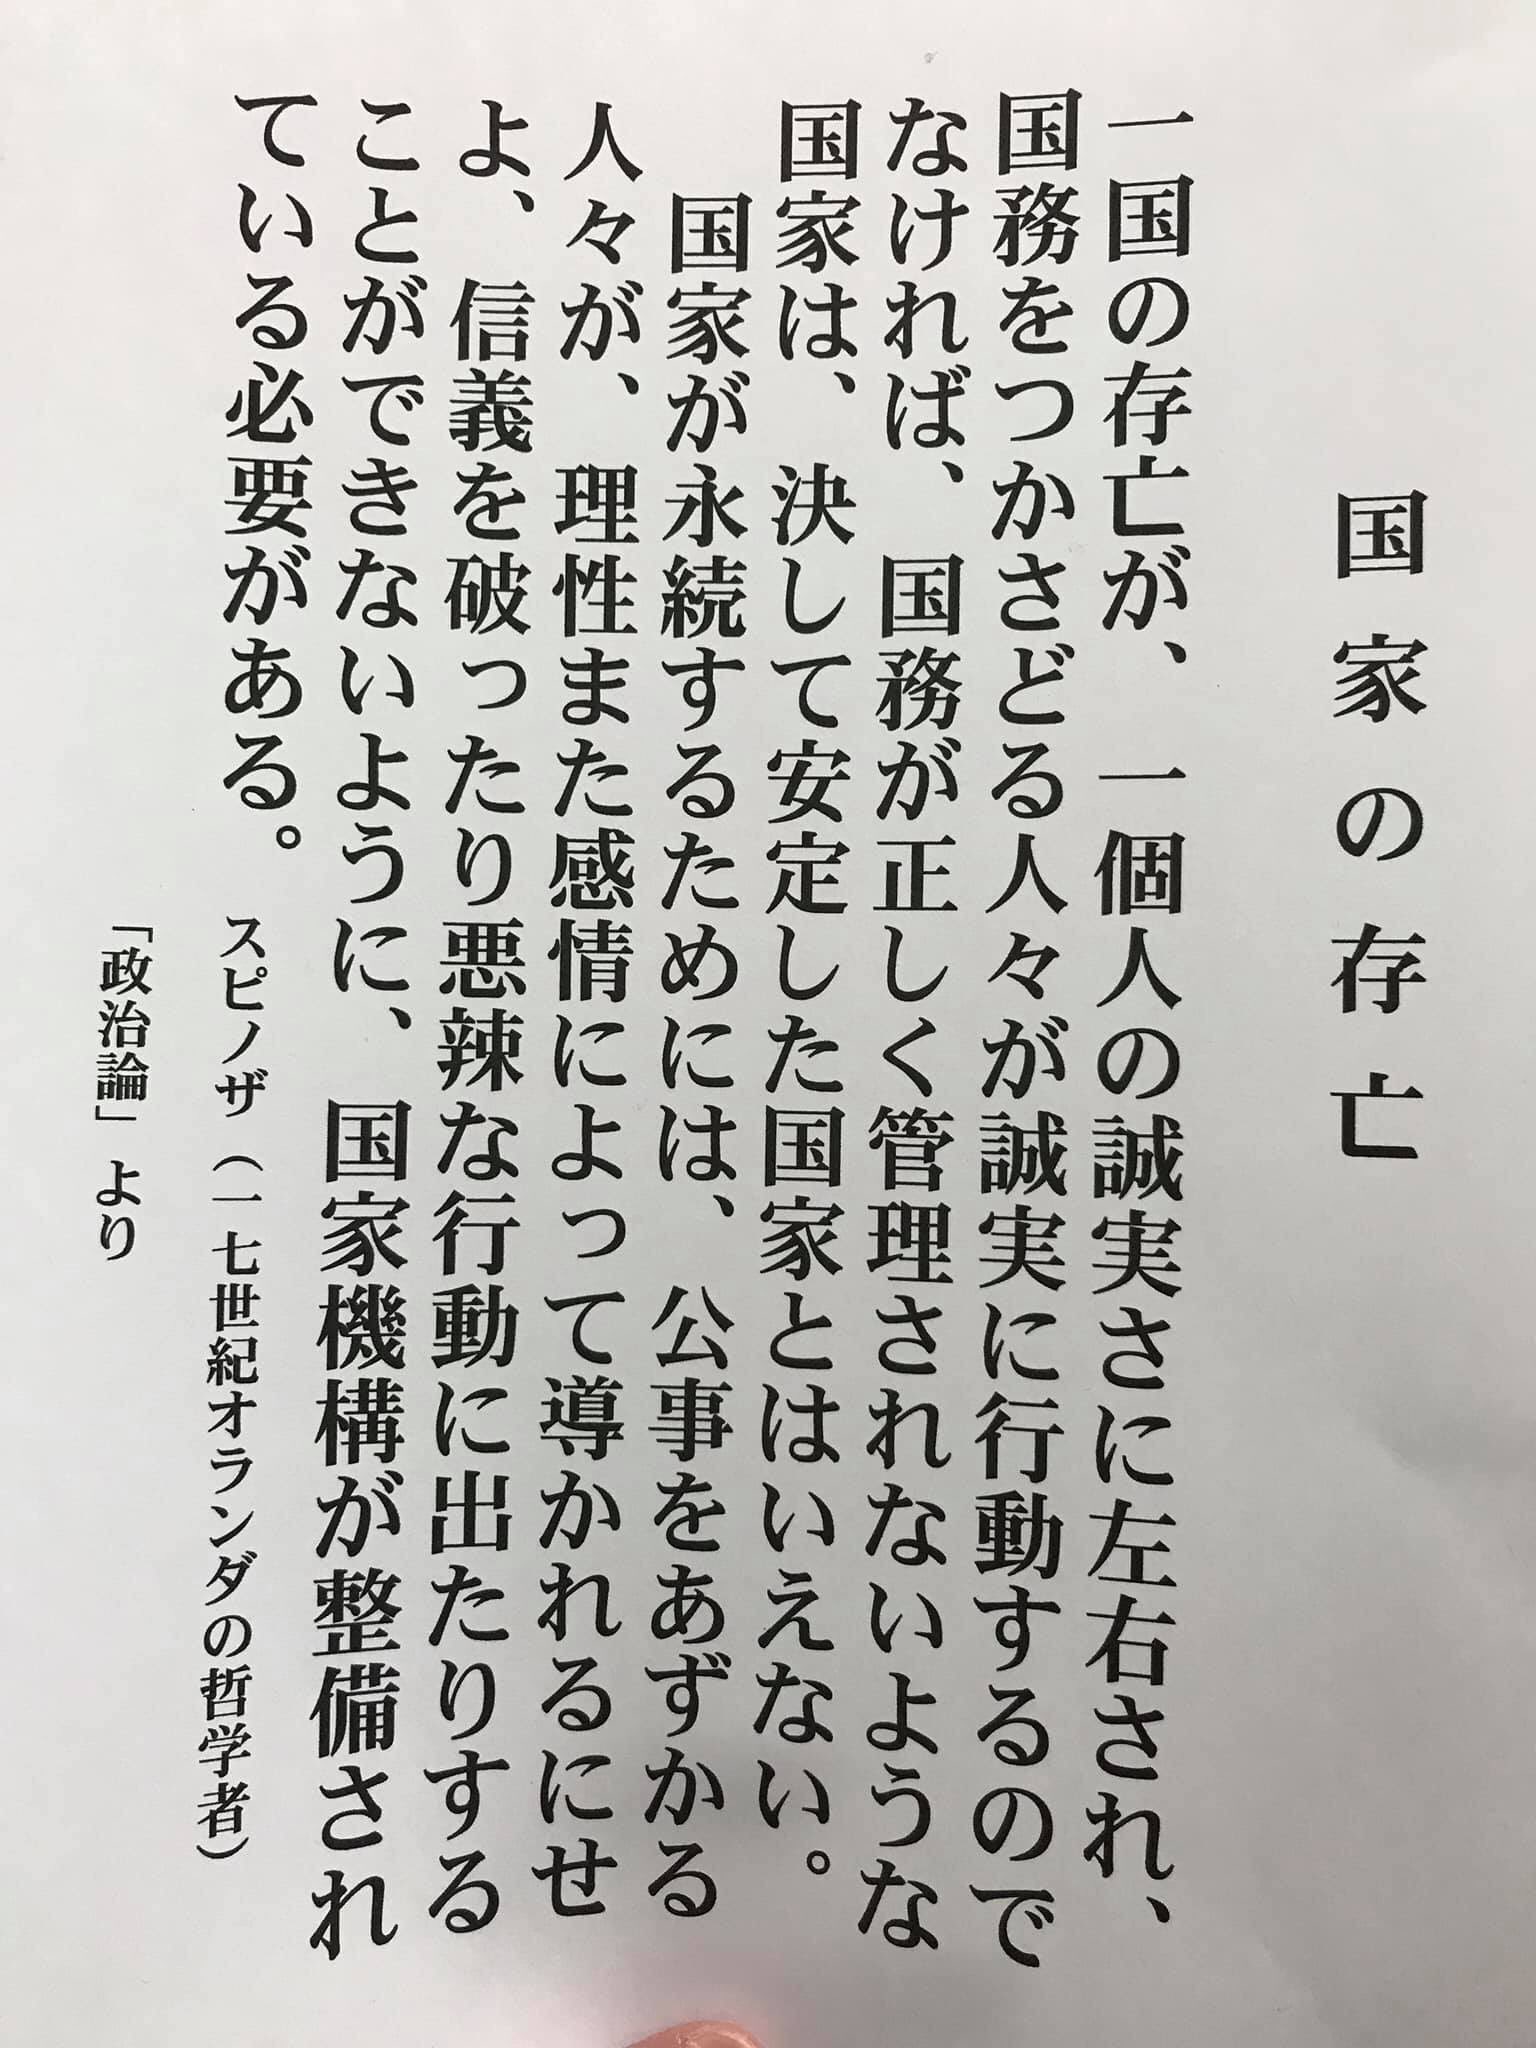 国家の存亡
一国の存亡が、一個人の誠実さに左右され、
国務をつかさどる人々が誠実に行動するので
なければ、国務が正しく管理されないような
国家は、決して安定した国家とはいえない。
国家が永続するためには、公事をあずかる
人々が、理性また感情によって導かれるにせ
よ、信義を破ったり悪辣な行動に出たりする
ことができないように、国家機構が整備され
ている必要がある。
スピノザ（一七世紀オランダの哲学者）
「政治論」より